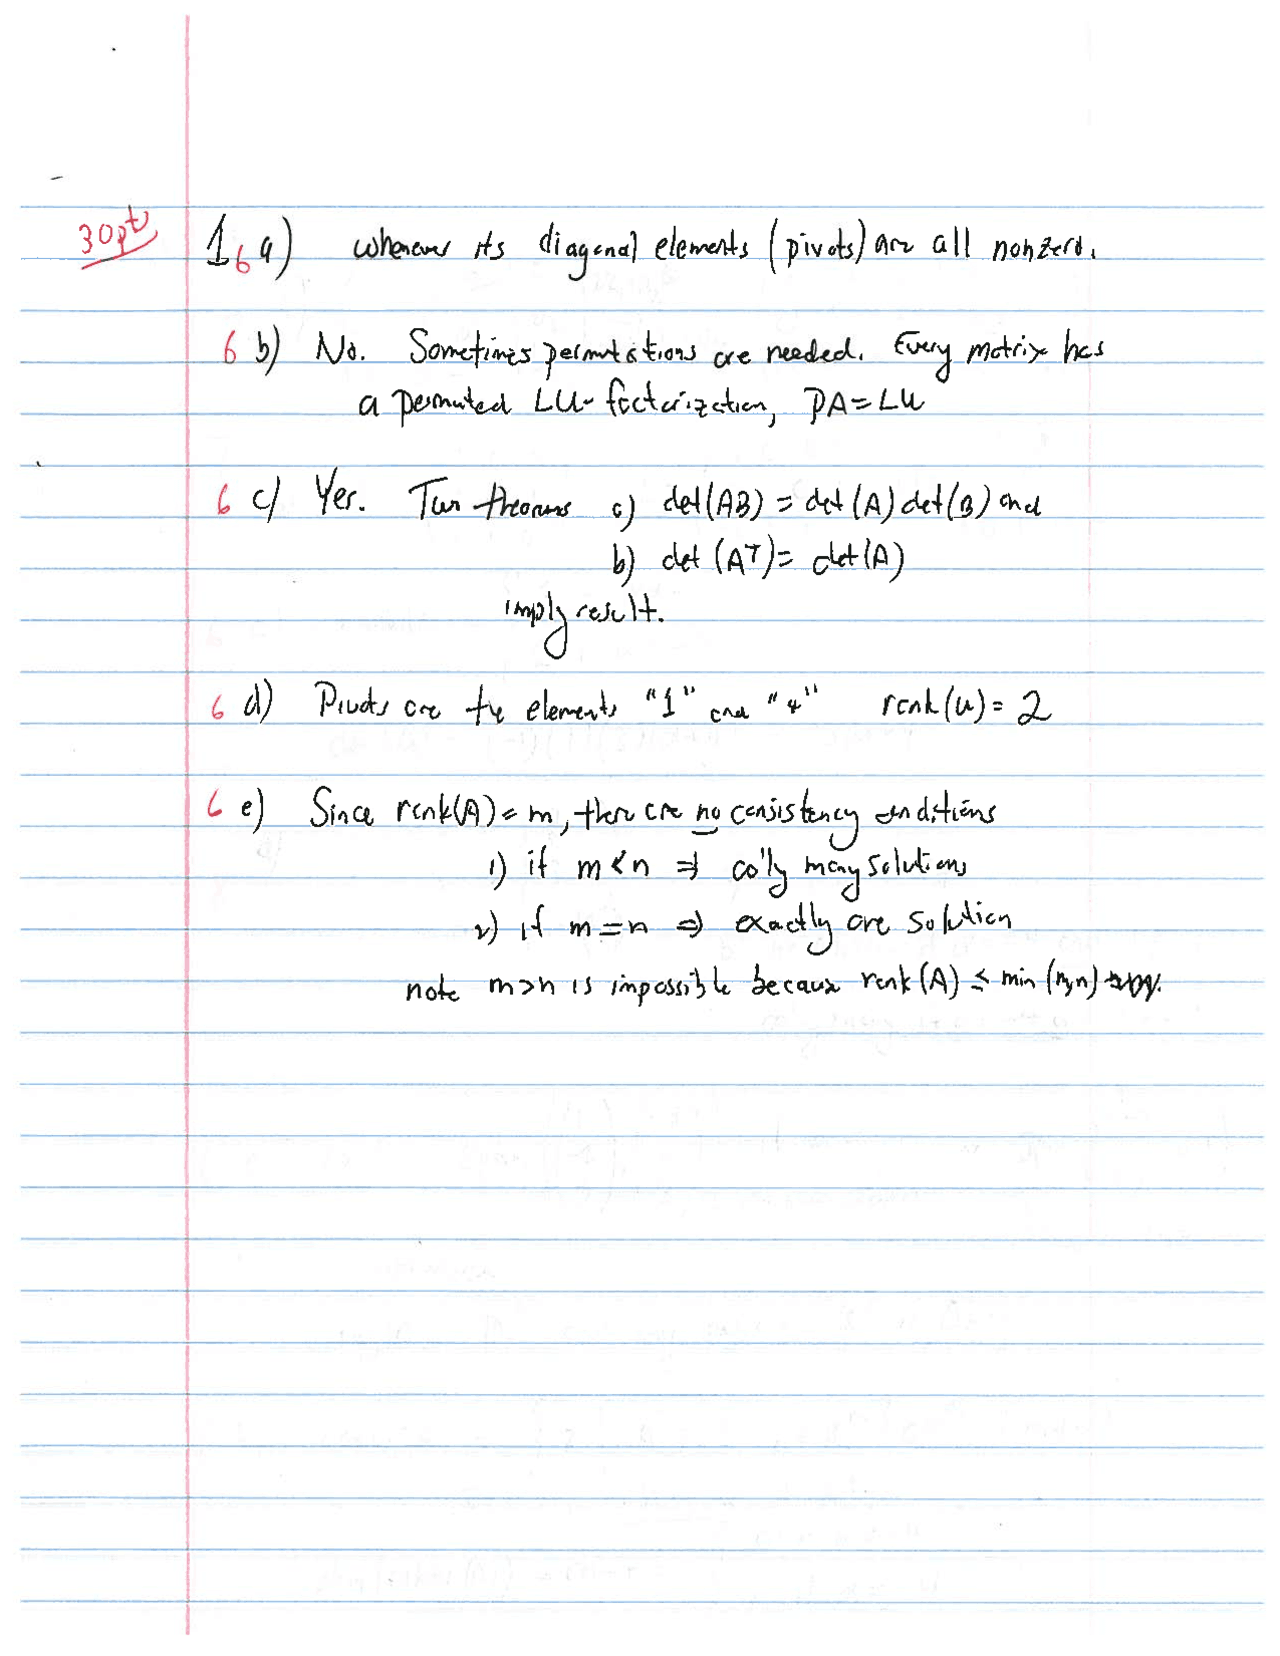 30pts 1 6 a) whenever its diagonal elements (pivots) are all nonzero.
6 b) No. Sometimes permutations are needed. Every matrix has
a permuted LU-factorization, PA=LU
6 c) Yes. Two theorems a) det(AB) = det(A)det(B) and
b) det(Aᵀ) = det(A)
imply result.
6 d) Pivots are the elements "1" and "4" rank(U) = 2
6 e) Since rank(A) = m, there are no consistency conditions
1) if m < n ⇒ ∞'ly many solutions
2) if m = n ⇒ exactly one solution
note m>n is impossible because rank(A) ≤ min(m,n)